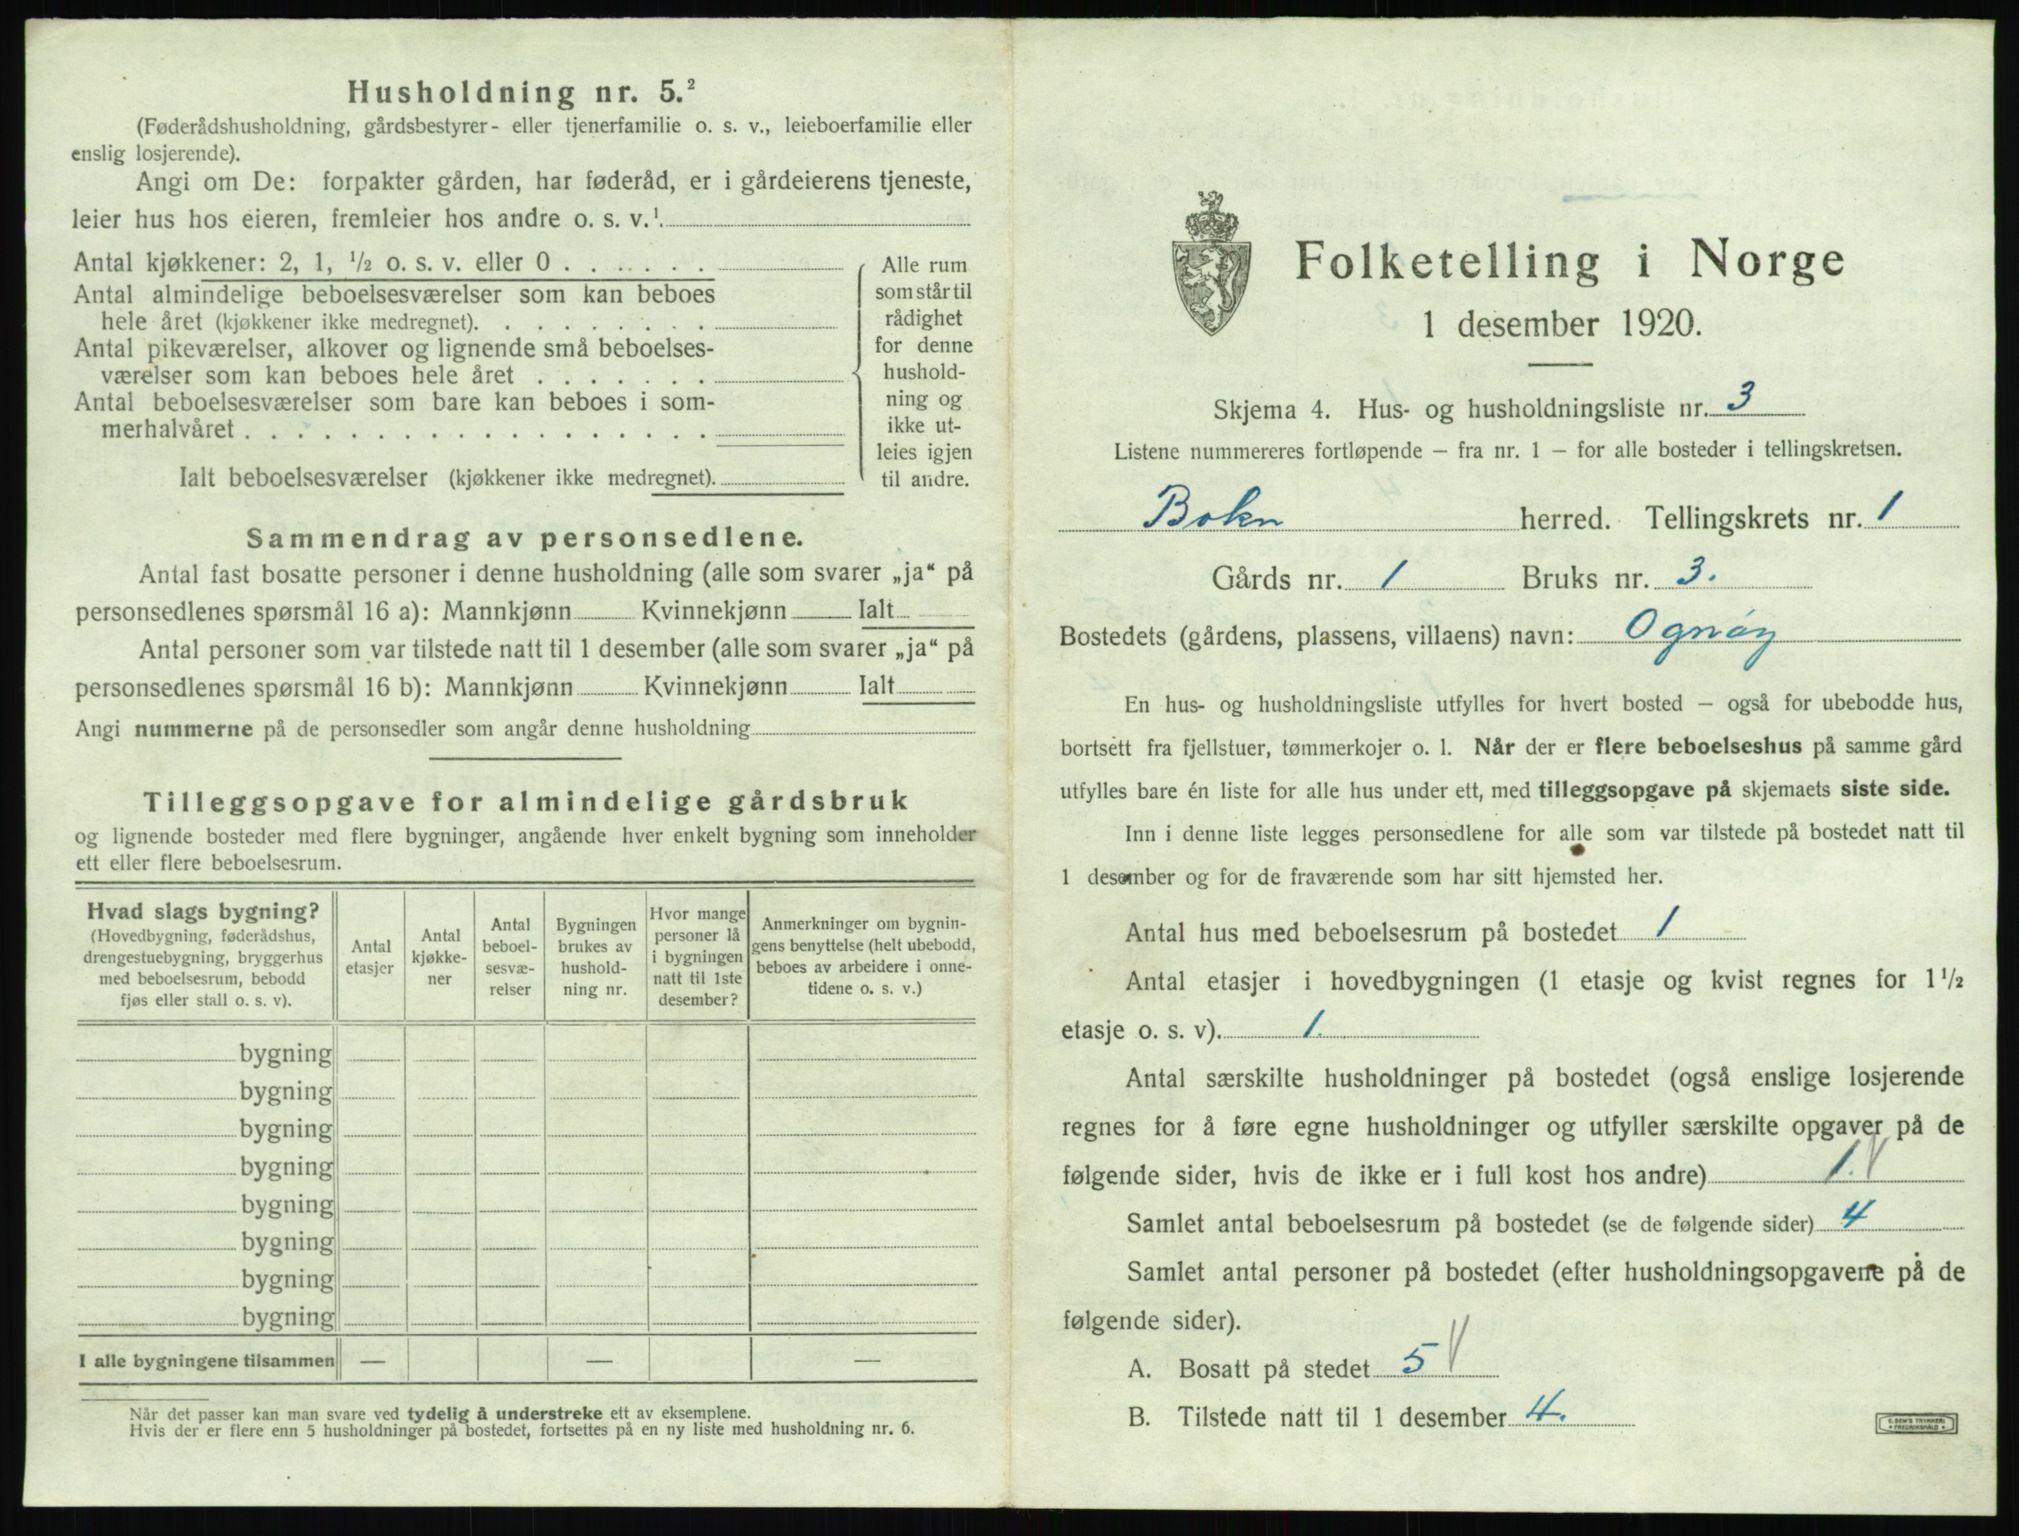 Husholdning nr. 5.²
(Føderådshusholdning, gårdsbestyrer- eller tjenerfamilie o. s. v., leieboerfamilie eller
enslig losjerende).
Angi om De: forpakter gården, har føderåd, er i gårdeierens tjeneste,
leier hus hos eieren, fremleier hos andre o. s. v.¹
Antal kjøkkener: 2, 1, ½ o. s. v. eller 0 . . . . . .
Antal almindelige beboelsesværelser som kan beboes
hele året (kjøkkener ikke medregnet). . . . . . . . .
Antal pikeværelser, alkover og lignende små beboelses-
værelser som kan beboes hele året . . . . . . .
Antal beboelsesværelser som bare kan beboes i som-
merhalvåret . . . . . . . . . . . . . . . . . .
Ialt beboelsesværelser (kjøkkener ikke medregnet).
Alle rum
som står til
rådighet
for denne
hushold-
ning og
ikke ut-
leies igjen
til andre.
Sammendrag av personsedlene.
Antal fast bosatte personer i denne husholdning (alle som svarer „ja" på
personsedlenes spørsmål 16 a): Mannkjønn Kvinnekjønn Ialt
Antal personer som var tilstede natt til 1 desember (alle som svarer „ja" på
personsedlenes spørsmål 16 b): Mannkjønn Kvinnekjønn Ialt
Angi nummerne på de personsedler som angår denne husholdning
Tilleggsopgave for almindelige gårdsbruk
og lignende bosteder med flere bygninger, angående hver enkelt bygning som inneholder
ett eller flere beboelsesrum.
Hvad slags bygning?
(Hovedbygning, føderådshus,
drengestuebygning, bryggerhus
med beboelsesrum, bebodd
fjøs eller stall o. s. v).
Antal
etasjer
Antal
kjøkke-
ner
Antal
beboel-
sesvæ-
relser
Bygningen
brukes av
hushold-
ning nr.
Hvor mange
personer lå
i bygningen
natt til 1ste
desember?
Anmerkninger om bygnin-
gens benyttelse (helt ubebodd,
beboes av arbeidere i onne-
tidene o. s. v.)
bygning
bygning
bygning
bygning
bygning
bygning
bygning
bygning
I alle bygningene tilsammen — — —
Når det passer kan man svare ved tydelig å understreke ett av eksemplene.
Hvis der er flere enn 5 husholdninger på bostedet, fortsettes på en ny liste med husholdning nr. 6.
Folketelling i Norge
1 desember 1920.
Skjema 4. Hus- og husholdningsliste nr. 3
Listene nummereres fortløpende – fra nr. 1 – for alle bosteder i tellingskretsen.
Bokn herred. Tellingskrets nr. 1
Gårds nr. 1 Bruks nr. 3.
Bostedets (gårdens, plassens, villaens) navn: Ognøy
En hus- og husholdningsliste utfylles for hvert bosted – også for ubebodde hus,
bortsett fra fjellstuer, tømmerkojer o. l. Når der er flere beboelseshus på samme gård
utfylles bare én liste for alle hus under ett, med tilleggsopgave på skjemaets siste side.
Inn i denne liste legges personsedlene for alle som var tilstede på bostedet natt til
1 desember og for de fraværende som har sitt hjemsted her.
Antal hus med beboelsesrum på bostedet 1
Antal etasjer i hovedbygningen (1 etasje og kvist regnes for 1 ½
etasje o. s. v). 1.
Antal særskilte husholdninger på bostedet (også enslige losjerende
regnes for å føre egne husholdninger og utfyller særskilte opgaver på de
følgende sider, hvis de ikke er i full kost hos andre) 1.
Samlet antal beboelsesrum på bostedet (se de følgende sider) 4
Samlet antal personer på bostedet (efter husholdningsopgavene på de
følgende sider).
A. Bosatt på stedet 5
B. Tilstede natt til 1 desember 4.